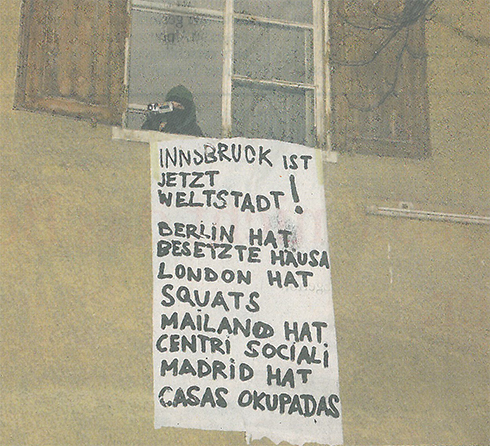 INNSBRUCK IST
JETZT
WELTSTADT!
BERLIN HAT
BESETZTE HÄUSA
LONDON HAT
SQUATS
MAILAND HAT
CENTRI SOCIALI
MADRID HAT
CASAS OKUPADAS